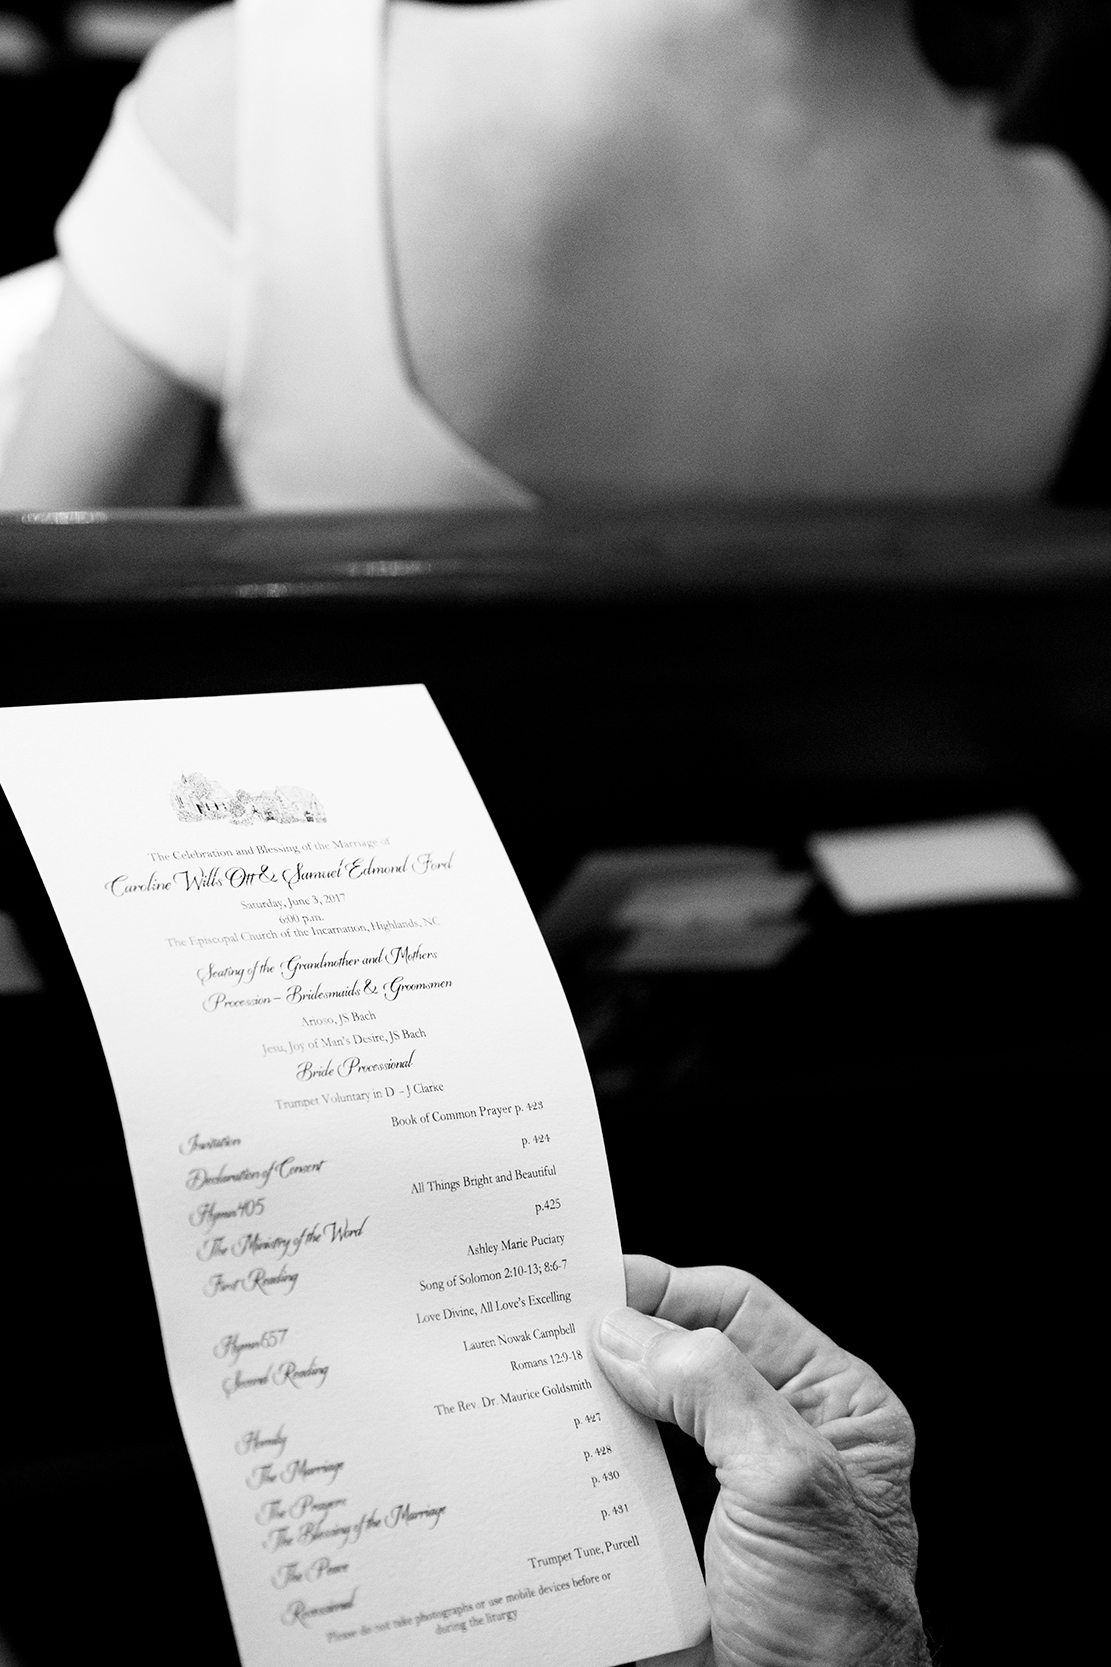 The Celebration and Blessing of the Marriage of
Caroline Wills Ott & Samuel Edmond Ford
Saturday, June 3, 2017
6:00 p.m.
The Episcopal Church of the Incarnation, Highlands, NC
Seating of the Grandmother and Mothers
Procession – Bridesmaids & Groomsmen
Arioso, JS Bach
Jesu, Joy of Man's Desire, JS Bach
Bride Processional
Trumpet Voluntary in D – J Clarke
Invitation Book of Common Prayer p. 423
Declaration of Consent p. 424
Hymn 405 All Things Bright and Beautiful
The Ministry of the Word p.425
First Reading Ashley Marie Puciaty
Song of Solomon 2:10-13; 8:6-7
Hymn 657 Love Divine, All Love's Excelling
Second Reading Lauren Nowak Campbell
Romans 12:9-18
Homily The Rev. Dr. Maurice Goldsmith
The Marriage p. 427
The Prayers p. 428
The Blessing of the Marriage p. 430
The Peace p. 431
Recessional Trumpet Tune, Purcell
Please do not take photographs or use mobile devices before or
during the liturgy